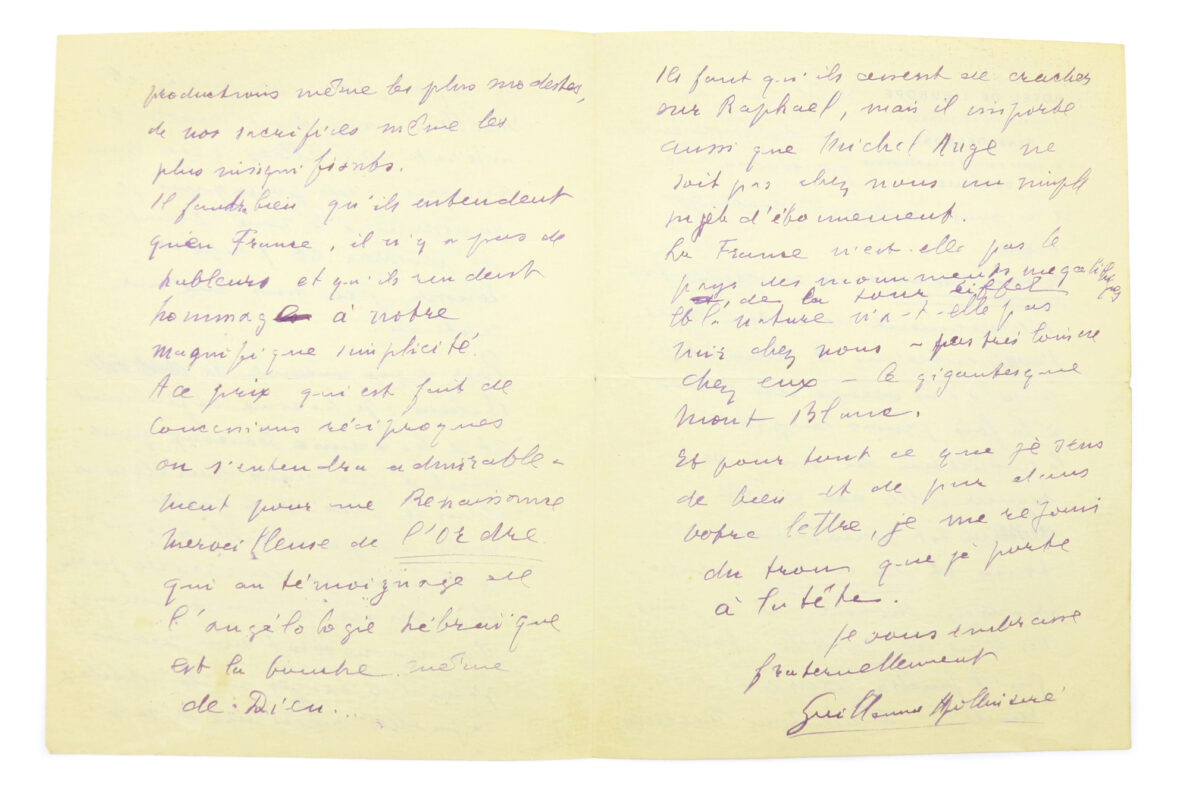 productions même les plus modestes,
de nos sacrifices même les
plus insignifiants.
Il faudra bien qu'ils entendent
qu'en France, il n'y a pas de
hableurs et qu'ils rendent
hommage à notre
magnifique simplicité.
A ce prix qui est fait de
concessions réciproques
on s'entendra admirable-
ment pour une Renaissance
merveilleuse de l'Ordre
qui au témoignage de
l'angélologie hébraïque
est la bouche même
de Dieu...
Il faut qu'ils cessent de cracher
sur Raphael, mais il importe
aussi que Michel Ange ne
soit pas chez nous un simple
sujet d'étonnement.
La France n'est-elle pas le
pays des monuments mégalithiques
et de la tour eiffel
Et la nature n'a-t-elle pas
mis chez nous – pas très loin de
chez eux – le gigantesque
Mont Blanc.
Et pour tout ce que je sens
de bien et de pur dans
votre lettre, je me réjouis
du trou que je porte
à la tête.
Je vous embrasse
fraternellement
Guillaume Apollinaire